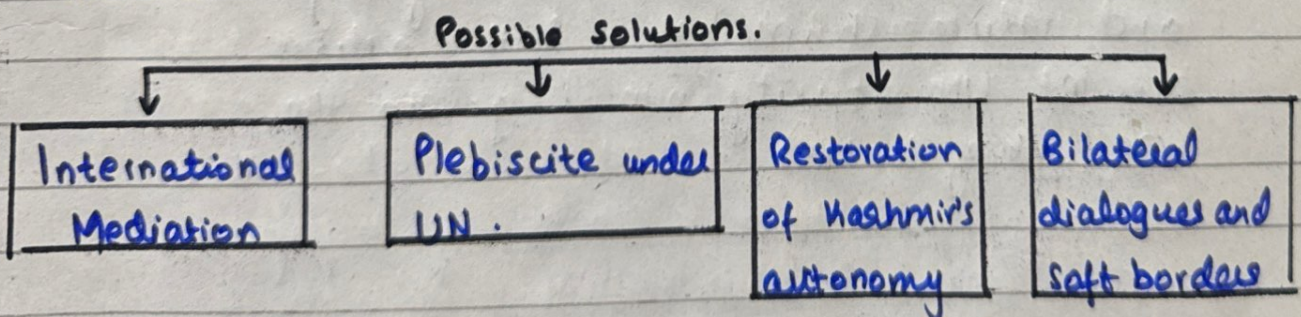 Possible solutions.
International
Mediation
Plebiscite under
UN.
Restoration
of Kashmir's
autonomy
Bilateral
dialogues and
soft borders